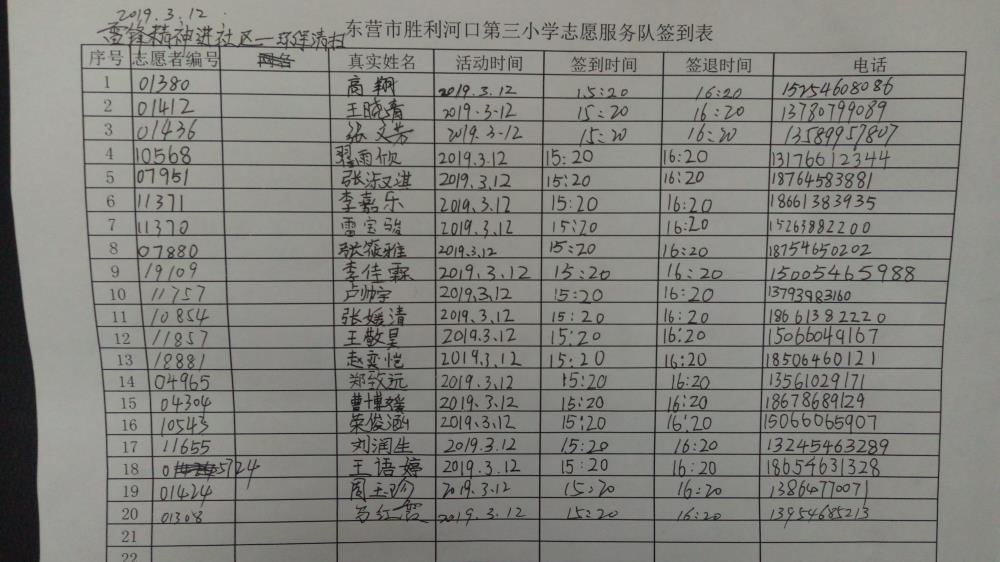 2019.3.12.
雷锋精神进社区—环保清扫
东营市胜利河口第三小学志愿服务队签到表
序号 志愿者编号 网名 真实姓名 活动时间 签到时间 签退时间 电话
1 01380 高翔 2019.3.12 15:20 16:20 15254608086
2 01412 王晓青 2019.3.12 15:20 16:20 13780799089
3 01436 张文芳 2019.3.12 15:20 16:20 13589957807
4 10568 翟雨欣 2019.3.12 15:20 16:20 13176612344
5 07951 张淑淇 2019.3.12 15:20 16:20 18764583881
6 11371 李嘉乐 2019.3.12 15:20 16:20 18661383935
7 11370 雷宝骏 2019.3.12 15:20 16:20 15263882200
8 07880 张筱雅 2019.3.12 15:20 16:20 18754650202
9 19109 李佳霖 2019.3.12 15:20 16:20 15005465988
10 11757 卢帅宇 2019.3.12 15:20 16:20 13793983160
11 10854 张媛清 2019.3.12 15:20 16:20 18661382220
12 11857 王敬昊 2019.3.12 15:20 16:20 15066049167
13 18881 赵奕恺 2019.3.12 15:20 16:20 18506460121
14 04965 郑致远 2019.3.12 15:20 16:20 13561029171
15 04304 曹博媛 2019.3.12 15:20 16:20 18678689129
16 10543 荣俊涵 2019.3.12 15:20 16:20 15066065907
17 11655 刘润生 2019.3.12 15:20 16:20 13245463289
18 05724 王语婷 2019.3.12 15:20 16:20 18654631328
19 01424 周玉珍 2019.3.12 15:20 16:20 13864770071
20 01308 马红霞 2019.3.12 15:20 16:20 13954685213
21
22